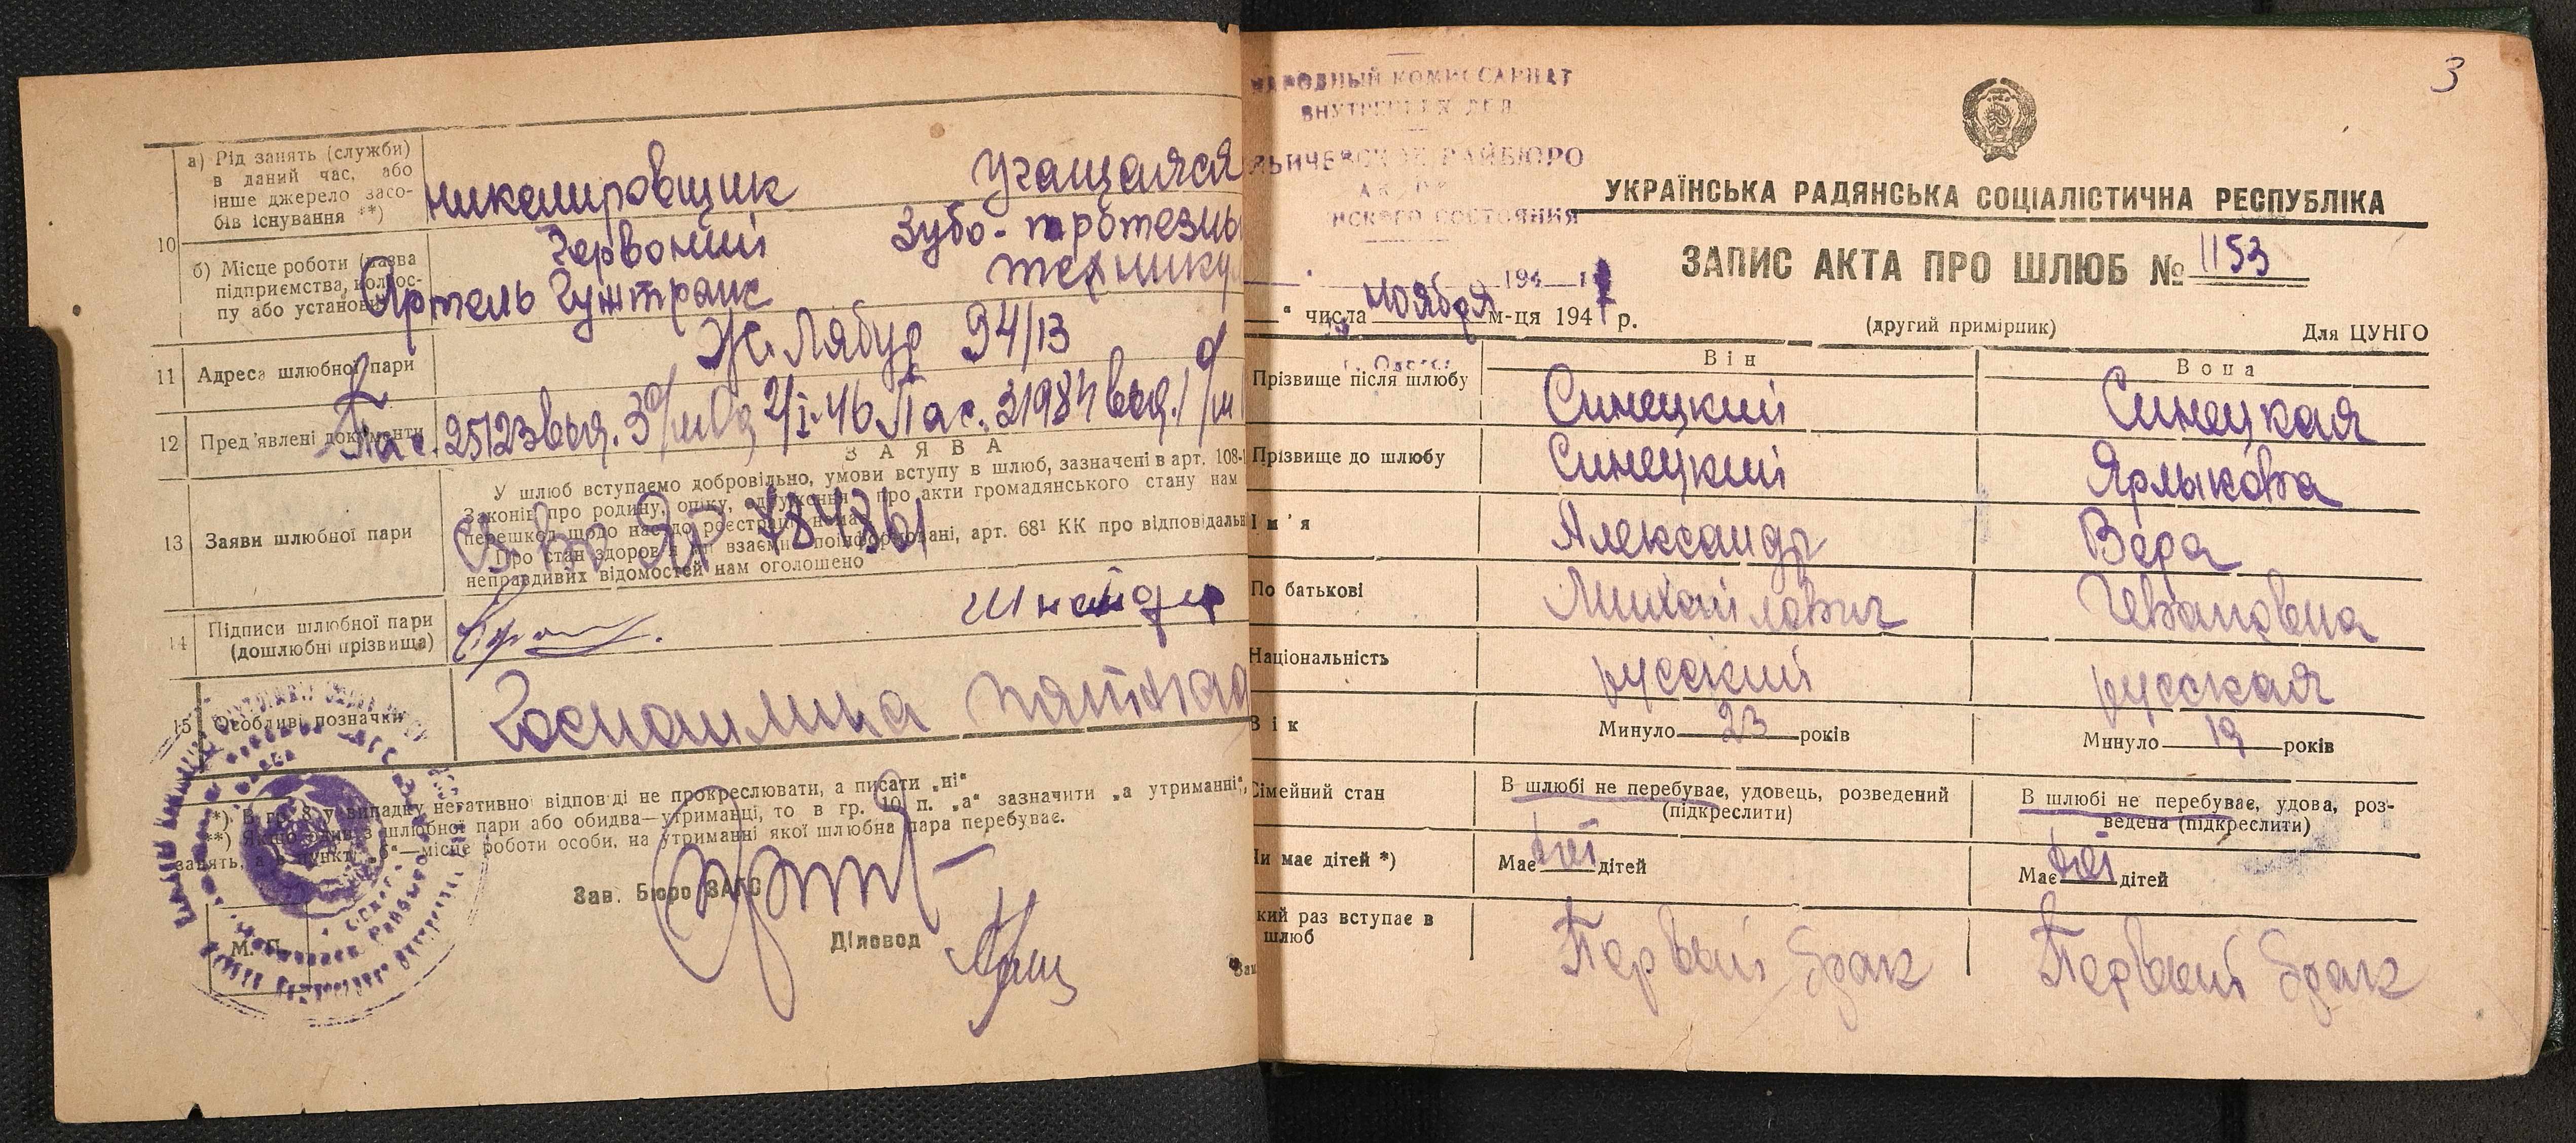 10
а) Рід занять (служби)
в даний час, або
інше джерело засо-
бів існування **)
никелировщик
Учащаяся
Зубо-протезно
технику
б) Місце роботи (назва
підприємства, колгос-
пу або установи)
Червоний
Артель Гужтранс
11 Адреса шлюбної пари
Ж. Лябур 94/13
12 Пред'явлені документи
Пас. 25123 выд. 3 о/м Од 2/I-46 Пас. 31984 выд. 1 о/м
ЗАЯВА
13 Заяви шлюбної пари
У шлюб вступаємо добровільно, умови вступу в шлюб, зазначені в арт. 108-
Законів про родину, опіку, одруження і про акти громадянського стану нам
перешкод щодо нас до реєстрації нема
Про стан здоров'я ми взаємно поінформовані, арт. 68¹ КК про відповідальн
неправдивих відомостей нам оголошено
Св-во ЯР 78436
14 Підписи шлюбної пари
(дошлюбні прізвища)
Шнайдер
15 Особливі позначки
Госпошлина
*) В гр. 8 у випадку негативної відповіді не прокреслювати, а писати „ні“
**) Якщо один з шлюбної пари або обидва—утриманці, то в гр. 10 п. „а“ зазначити „а утриманні“,
занять, а в пункті „б“—місце роботи особи, на утриманні якої шлюбна пара перебуває.
Зав. Бюро ЗАГС
Діловод
М. П.
3
НАРОДНЫЙ КОМИССАРИАТ
ВНУТРЕННИХ ДЕЛ
ЛЬИЧЕВСКОЕ РАЙБЮРО
НСКОГО СОСТОЯНИЯ
194
УКРАЇНСЬКА РАДЯНСЬКА СОЦІАЛІСТИЧНА РЕСПУБЛІКА
ЗАПИС АКТА ПРО ШЛЮБ № 1153
“ числа ноября м-ця 194 р.
(другий примірник)
Для ЦУНГО
г. Одесса
Він
Вона
Прізвище після шлюбу Синецкий Синецкая
Прізвище до шлюбу Синецкий Ярлыкова
Ім'я Александр Вера
По батькові Михайлович Ивановна
Національність русский русская
Вік Минуло 23 років Минуло 19 років
Сімейний стан
В шлюбі не перебуває, удовець, розведений
(підкреслити)
В шлюбі не перебуває, удова, роз-
ведена (підкреслити)
Чи має дітей *) Має ні дітей Має ні дітей
кий раз вступає в
шлюб
Первый брак Первый брак